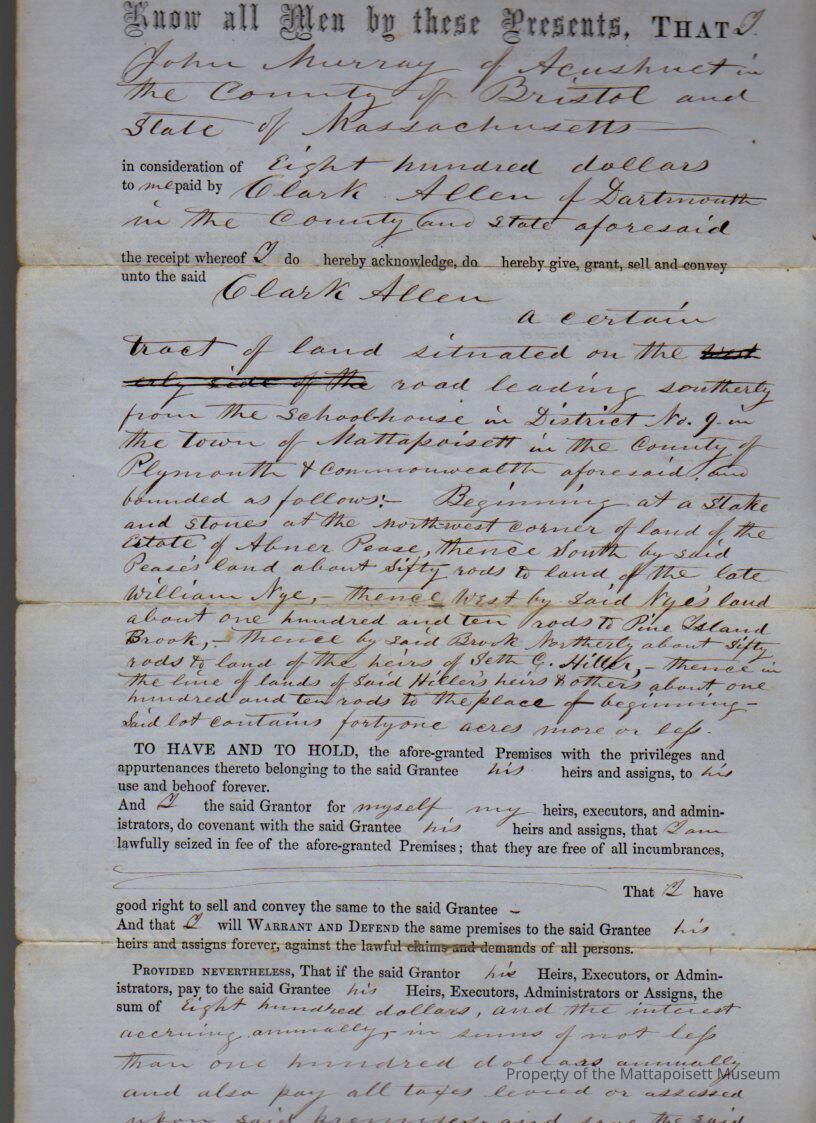 Know all Men by these Presents, THAT I
John Murray of Acushnet in
the County of Bristol and
State of Massachusetts
in consideration of Eight hundred dollars
to me paid by Clark Allen of Dartmouth
in the County and State aforesaid
the receipt whereof I do hereby acknowledge, do hereby give, grant, sell and convey
unto the said Clark Allen
a certain
tract of land situated on the west
erly side of the road leading southerly
from the Schoolhouse in District No. 9 in
the town of Mattapoisett in the County of
Plymouth & Commonwealth aforesaid and
bounded as follows:- Beginning at a Stake
and Stones at the northwest corner of land of the
Estate of Abner Pease, thence South by said
Pease's land about Sifty rods to land of the late
William Nye,- thence West by Said Nye's land
about one hundred and ten rods to Pine Island
Brook,- thence by Said Brook Northerly about Sifty
rods to land of the heirs of Seth G. Hiller,- thence in
the line of lands of Said Hiller's heirs & others about one
hundred and ten rods to the place of beginning-
Said lot contains forty one acres more or less.
TO HAVE AND TO HOLD, the afore-granted Premises with the privileges and
appurtenances thereto belonging to the said Grantee his heirs and assigns, to his
use and behoof forever.
And I the said Grantor for myself my heirs, executors, and admin-
istrators, do covenant with the said Grantee his heirs and assigns, that I am
lawfully seized in fee of the afore-granted Premises; that they are free of all incumbrances,
That I have
good right to sell and convey the same to the said Grantee -
And that I will WARRANT AND DEFEND the same premises to the said Grantee his
heirs and assigns forever, against the lawful claims and demands of all persons.
PROVIDED NEVERTHELESS, That if the said Grantor his Heirs, Executors, or Admin-
istrators, pay to the said Grantee his Heirs, Executors, Administrators or Assigns, the
sum of Eight hundred dollars, and the interest
accruing annually, in sums of not less
than one hundred dollars annually
and also pay all taxes levied or assessed
upon said premises and save the said
Property of the Mattapoisett Museum